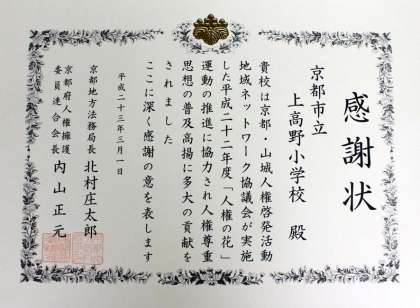 感謝状
京都市立
上高野小学校 殿
貴校は京都・山城人権啓発活動
地域ネットワーク協議会が実施
した平成二十二年度「人権の花」
運動の推進に協力され人権尊重
思想の普及高揚に多大の貢献を
されました
ここに深く感謝の意を表します
平成二十三年三月一日
京都地方法務局長 北村庄太郎
京都府人権擁護
委員連合会会長 内山正元